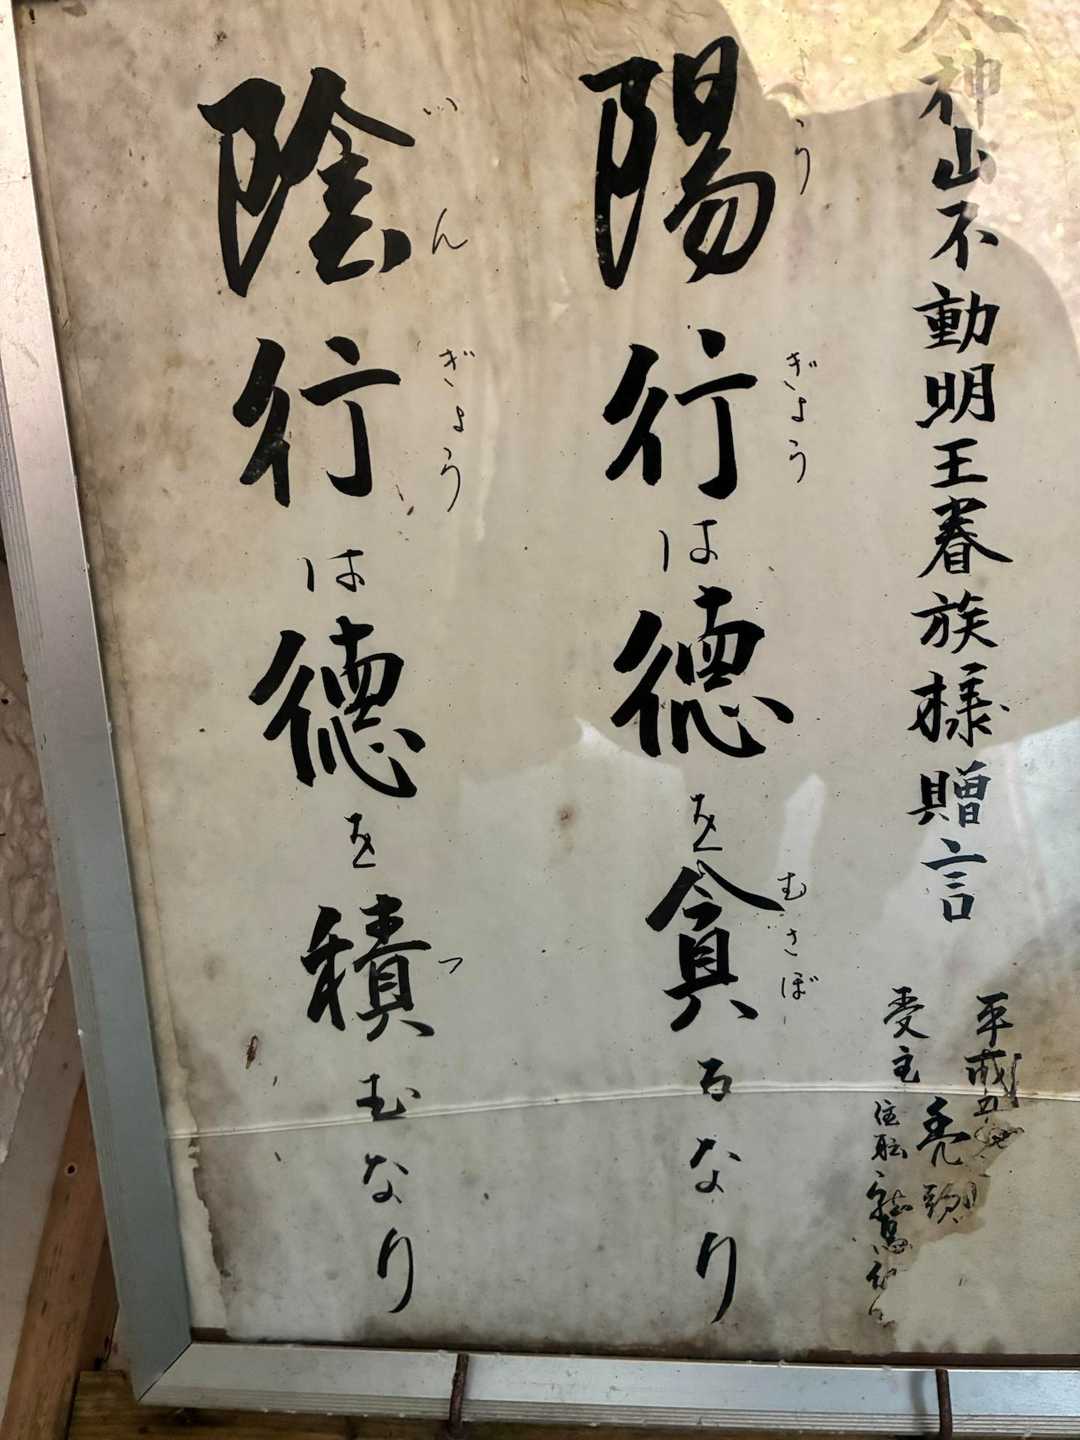 神山不動明王眷族様贈言
平成五
禿頭
受主
陽行は徳を貪るなり
ようぎょう
むさぼ
陰行は徳を積むなり
いんぎょう
つ